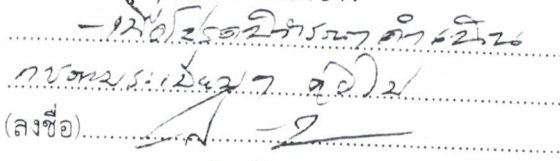 - เพื่อโปรดพิจารณาดำเนิน
การตามระเบียบฯ ต่อไป
(ลงชื่อ)